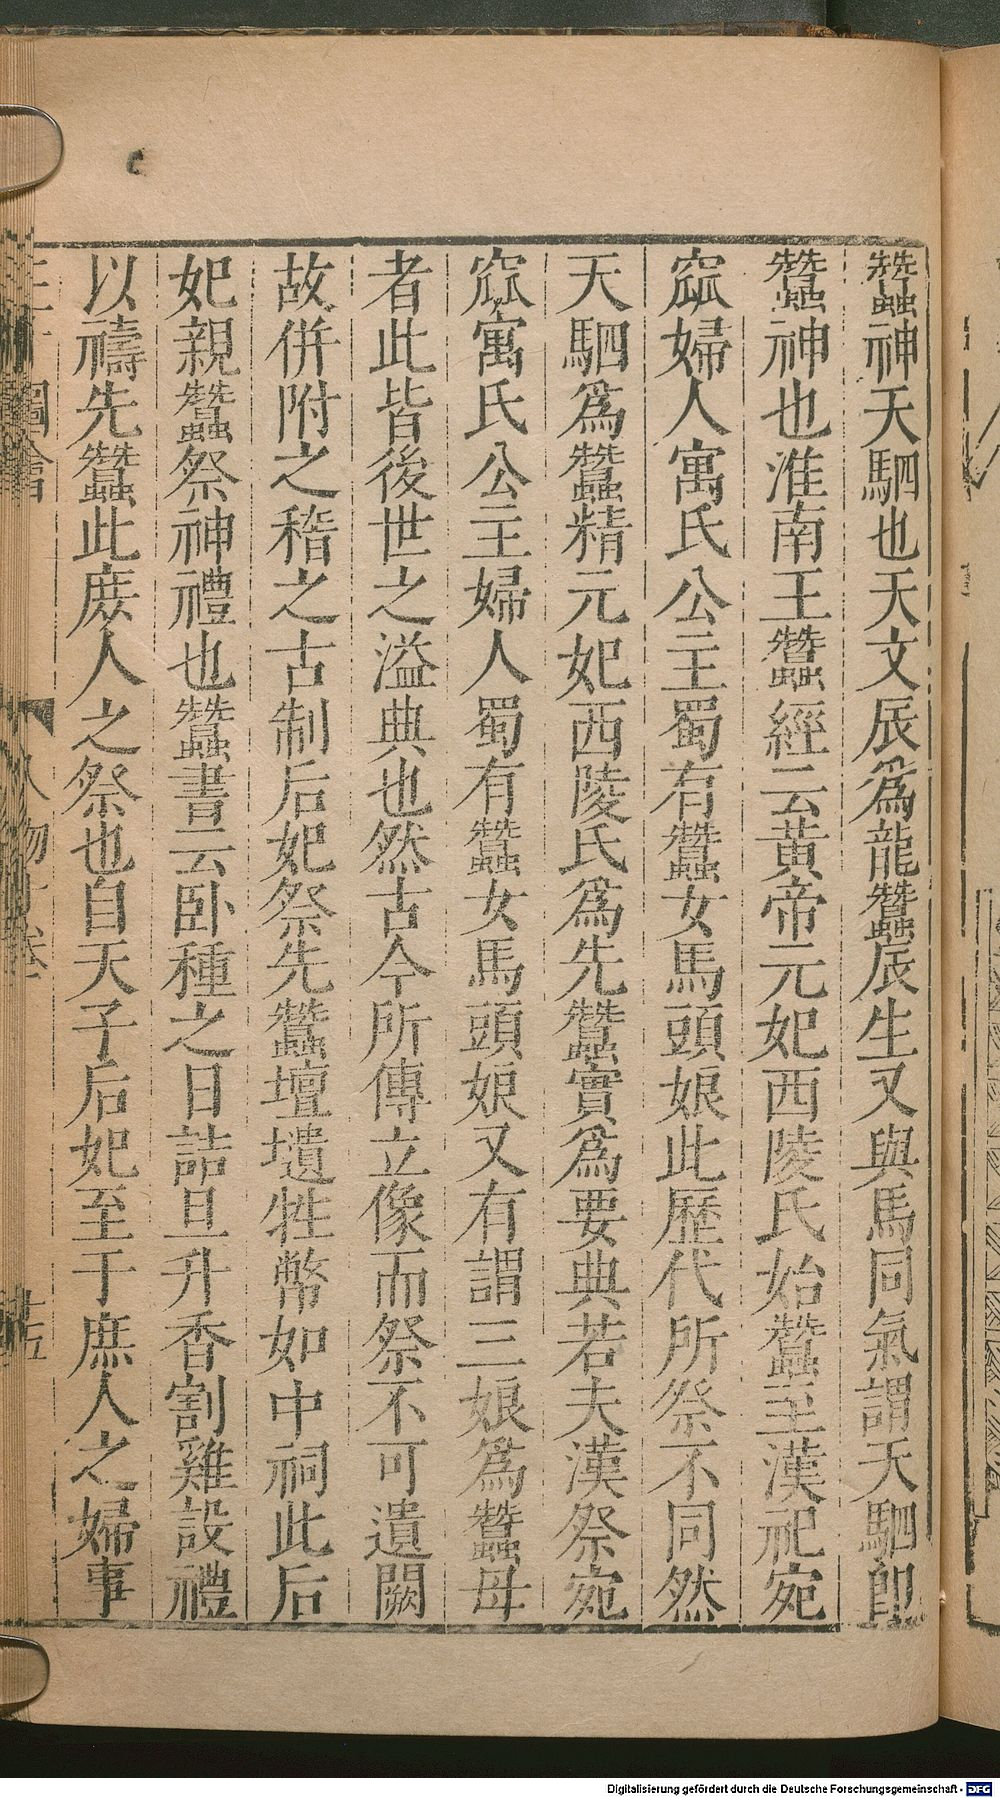 蠶神天駟也天文辰爲龍蠶辰生又與馬同氣謂天駟即
蠶神也淮南王蠶經云黃帝元妃西陵氏始蠶至漢祀宛
窳婦人寓氏公主蜀有蠶女馬頭娘此歷代所祭不同然
天駟爲蠶精元妃西陵氏爲先蠶實爲要典若夫漢祭宛
窳寓氏公主婦人蜀有蠶女馬頭娘又有謂三娘爲蠶母
者此皆後世之溢典也然古今所傳立像而祭不可遺闕
故併附之稽之古制后妃祭先蠶壇壝牲幣如中祠此后
妃親蠶祭神禮也蠶書云卧種之日詰旦升香割雞設禮
以禱先蠶此庶人之祭也自天子后妃至于庶人之婦事
圖會 人物 卷
Digitalisierung gefördert durch die Deutsche Forschungsgemeinschaft - DFG